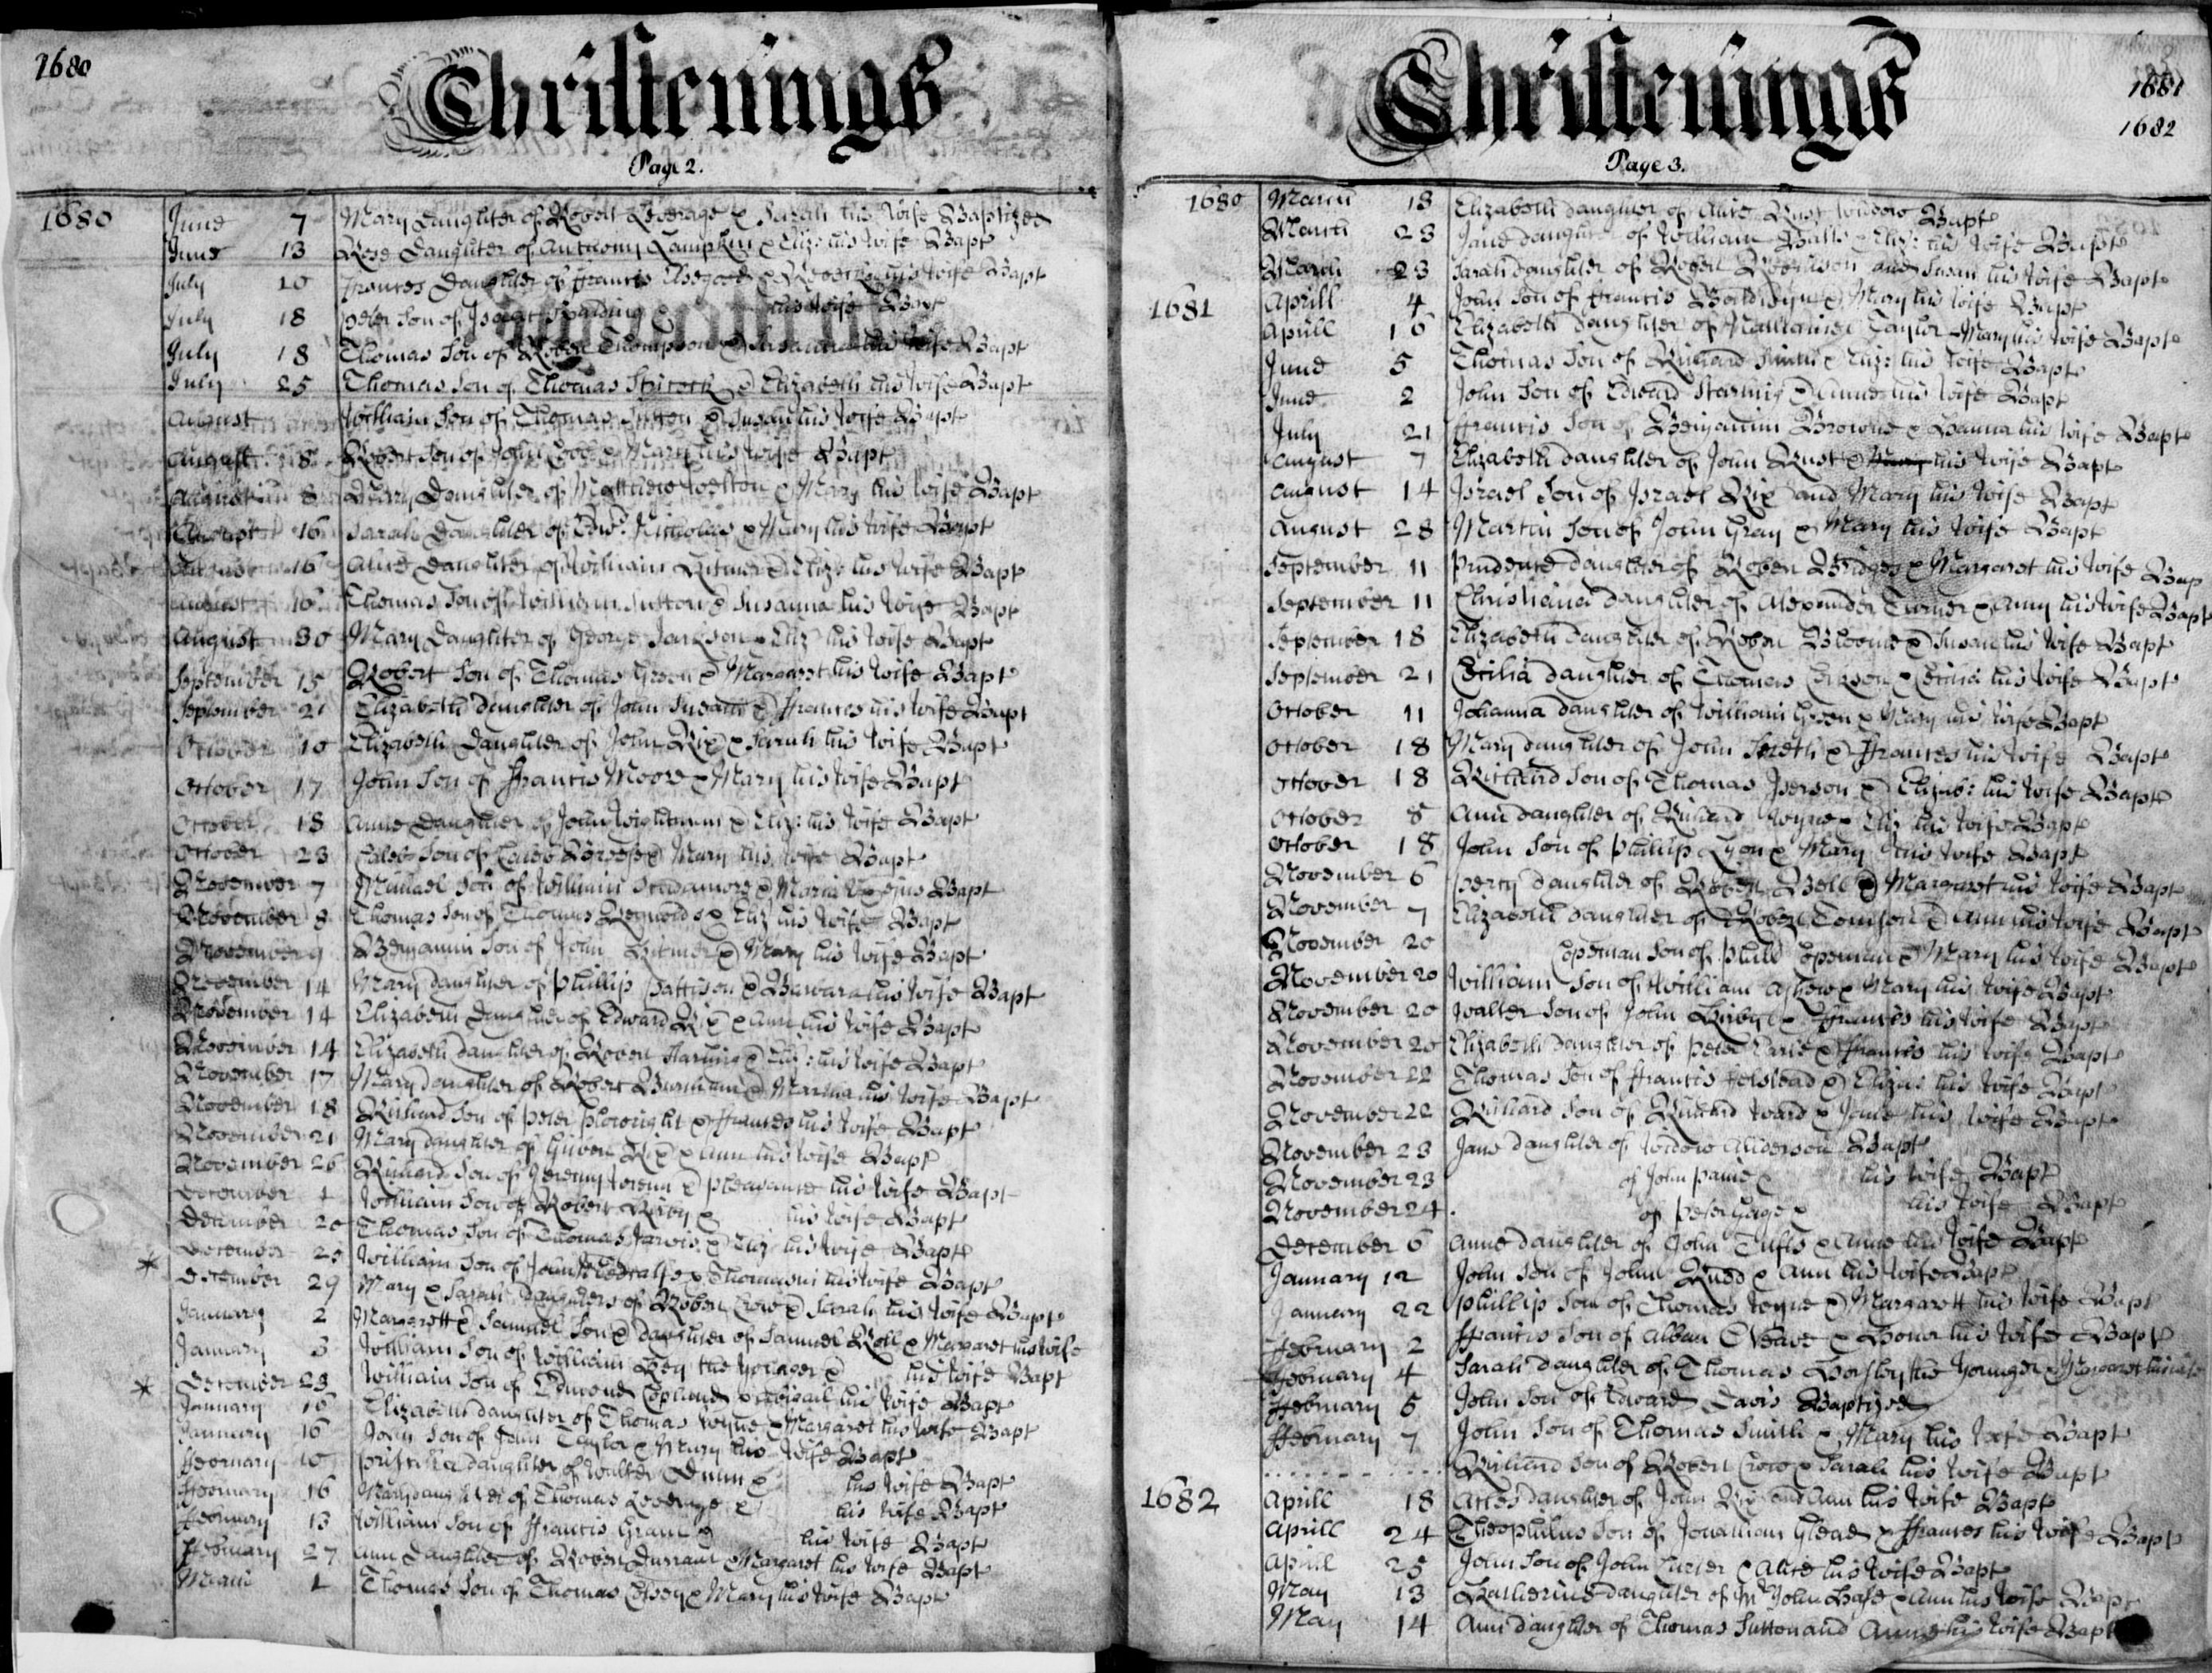 1680
Christenings
Page 2.
1680 June 7 Mary Daughter of Robert Leverage & Sarah his wife Baptized
June 13 Rose Daughter of Anthony Lampkin & Eliz: his wife Bapt
July 10 Frances Daughter of Francis & his wife Bapt
July 18 Peter Son of Spalding & his wife Bapt
July 18 Thomas Son of Robert Thompson & Susanna his wife Bapt
July 25 Thomas Son of Thomas & Elizabeth his wife Bapt
August William Son of Thomas Sutton & Susan his wife Bapt
August 8 Robert Son of John & Mary his wife Bapt
August 8 Mary Daughter of Matthew Welton & Mary his wife Bapt
August 16 Sarah Daughter of Edw: Nicholas & Mary his wife Bapt
August 16 Alice Daughter of William & Eliz: his wife Bapt
August 16 Thomas Son of William Sutton & Susanna his wife Bapt
August 30 Mary Daughter of George Jackson & Eliz his wife Bapt
September 15 Robert Son of Thomas Green & Margaret his wife Bapt
September 21 Elizabeth Daughter of John & Frances his wife Bapt
October 10 Elizabeth Daughter of John Rix & Sarah his wife Bapt
October 17 John Son of Francis Moore & Mary his wife Bapt
October 18 Anne Daughter of John Wightman & Eliz: his wife Bapt
October 23 Caleb Son of Caleb & Mary his wife Bapt
November 7 Michael Son of William & Maria Uxr ejus Bapt
November 8 Thomas Son of Thomas Reynolds & Eliz his wife Bapt
November 9 Benjamin Son of John & Mary his wife Bapt
November 14 Mary daughter of Phillip Pattison & Barbara his wife Bapt
November 14 Elizabeth Daughter of Edward Rix & Ann his wife Bapt
November 14 Elizabeth daughter of Robert Starling & Eliz: his wife Bapt
November 17 Mary daughter of Robert Burnham & Martha his wife Bapt
November 18 Richard Son of Peter Plowright & Frances his wife Bapt
November 21 Mary daughter of Rix & Ann his wife Bapt
November 26 Richard Son of Jeremy & Pleasance his wife Bapt
December 1 William Son of Robert Kirby & his wife Bapt
December 20 Thomas Son of Thomas Jarvis & Eliz his wife Bapt
* December 25 William Son of John & Thomasin his wife Bapt
December 29 Mary & Sarah Daughters of Robert Crow & Sarah his wife Bapt
January 2 Margrett & Samuel Son & daughter of Samuel Bell & Margaret his wife
January 3 William Son of William the younger & his wife Bapt
* December 23 William Son of Edmond Copland & Abigail his wife Bapt
January 16 Elizabeth daughter of Thomas Wyne & Margaret his wife Bapt
January 16 John Son of John Taylor & Mary his wife Bapt
February 10 Priscilla daughter of Walter Dunn & his wife Bapt
February 16 Mary daughter of Thomas Leverage & his wife Bapt
February 13 William Son of Francis & his wife Bapt
February 27 Ann Daughter of Robert Durrant & Margaret his wife Bapt
March 1 Thomas Son of Thomas & Mary his wife Bapt
Christenings
Page 3.
1681
1682
1680 March 18 Elizabeth daughter of Alice Rust widdow Bapt
March 23 Jane daughter of William & Eliz: his wife Bapt
March 23 Sarah daughter of Robert and Susan his wife Bapt
1681 Aprill 4 John Son of Francis & Mary his wife Bapt
Aprill 16 Elizabeth daughter of Nathaniel Taylor & Mary his wife Bapt
June 5 Thomas Son of Richard Smith & Eliz: his wife Bapt
June 2 John Son of Edward Starling & Anne his wife Bapt
July 21 Francis Son of Benjamin Browne & Hanna his wife Bapt
August 7 Elizabeth daughter of John Rust & Mary his wife Bapt
August 14 Israel Son of Israel Rix and Mary his wife Bapt
August 28 Martin Son of John Gray & Mary his wife Bapt
September 11 Prudence daughter of Robert Bridges & Margaret his wife Bap
September 11 Christiana daughter of Alexander Turner & Amy his wife Bapt
September 18 Elizabeth daughter of Robert Bloome & Susan his wife Bapt
September 21 Cecilia daughter of Thomas & Cecilia his wife Bapt
October 11 Johanna daughter of William Green & Mary his wife Bapt
October 18 Mary daughter of John & Frances his wife Bapt
October 18 Richard Son of Thomas & Elizab: his wife Bapt
October 8 Ann daughter of Richard Wyne & Eliz his wife Bapt
October 18 John Son of Phillip Lyon & Mary his wife Bapt
November 6 daughter of Robert Bell & Margaret his wife Bapt
November 7 Elizabeth daughter of Robert Tomson & Ann his wife Bapt
November 20 Copeman Son of Phill Copeman & Mary his wife Bapt
November 20 William Son of William Askew & Mary his wife Bapt
November 20 Walter Son of John Kirby & Frances his wife Bapt
November 20 Elizabeth daughter of Peter & Frances his wife Bapt
November 22 Thomas Son of Francis & his wife Bapt
November 22 Richard Son of Richard Ward & Jane his wife Bapt
November 23 Jane daughter of widow Anderson Bapt
November 23 of John Paine & his wife Bapt
November 24 of Peter Gage & his wife Bapt
December 6 Anne daughter of John Tufts & Anne his wife Bapt
January 12 John Son of John Rudd & Ann his wife Bapt
January 22 Phillip Son of Thomas Wyne & Margarett his wife Bapt
February 2 Francis Son of Alban & his wife Bapt
February 4 Sarah daughter of Thomas the younger & Margaret his wife
February 5 John Son of Edward Davis Baptized
February 7 John Son of Thomas Smith & Mary his wife Bapt
Richard Son of Robert Crow & Sarah his wife Bapt
1682 Aprill 18 daughter of John Rix and Ann his wife Bapt
Aprill 24 Theophilus Son of Jonathan & Frances his wife Bapt
Aprill 25 John Son of John & Alice his wife Bapt
May 13 Katherine daughter of Mr John & Ann his wife Bapt
May 14 Ann daughter of Thomas Sutton and Anne his wife Bapt